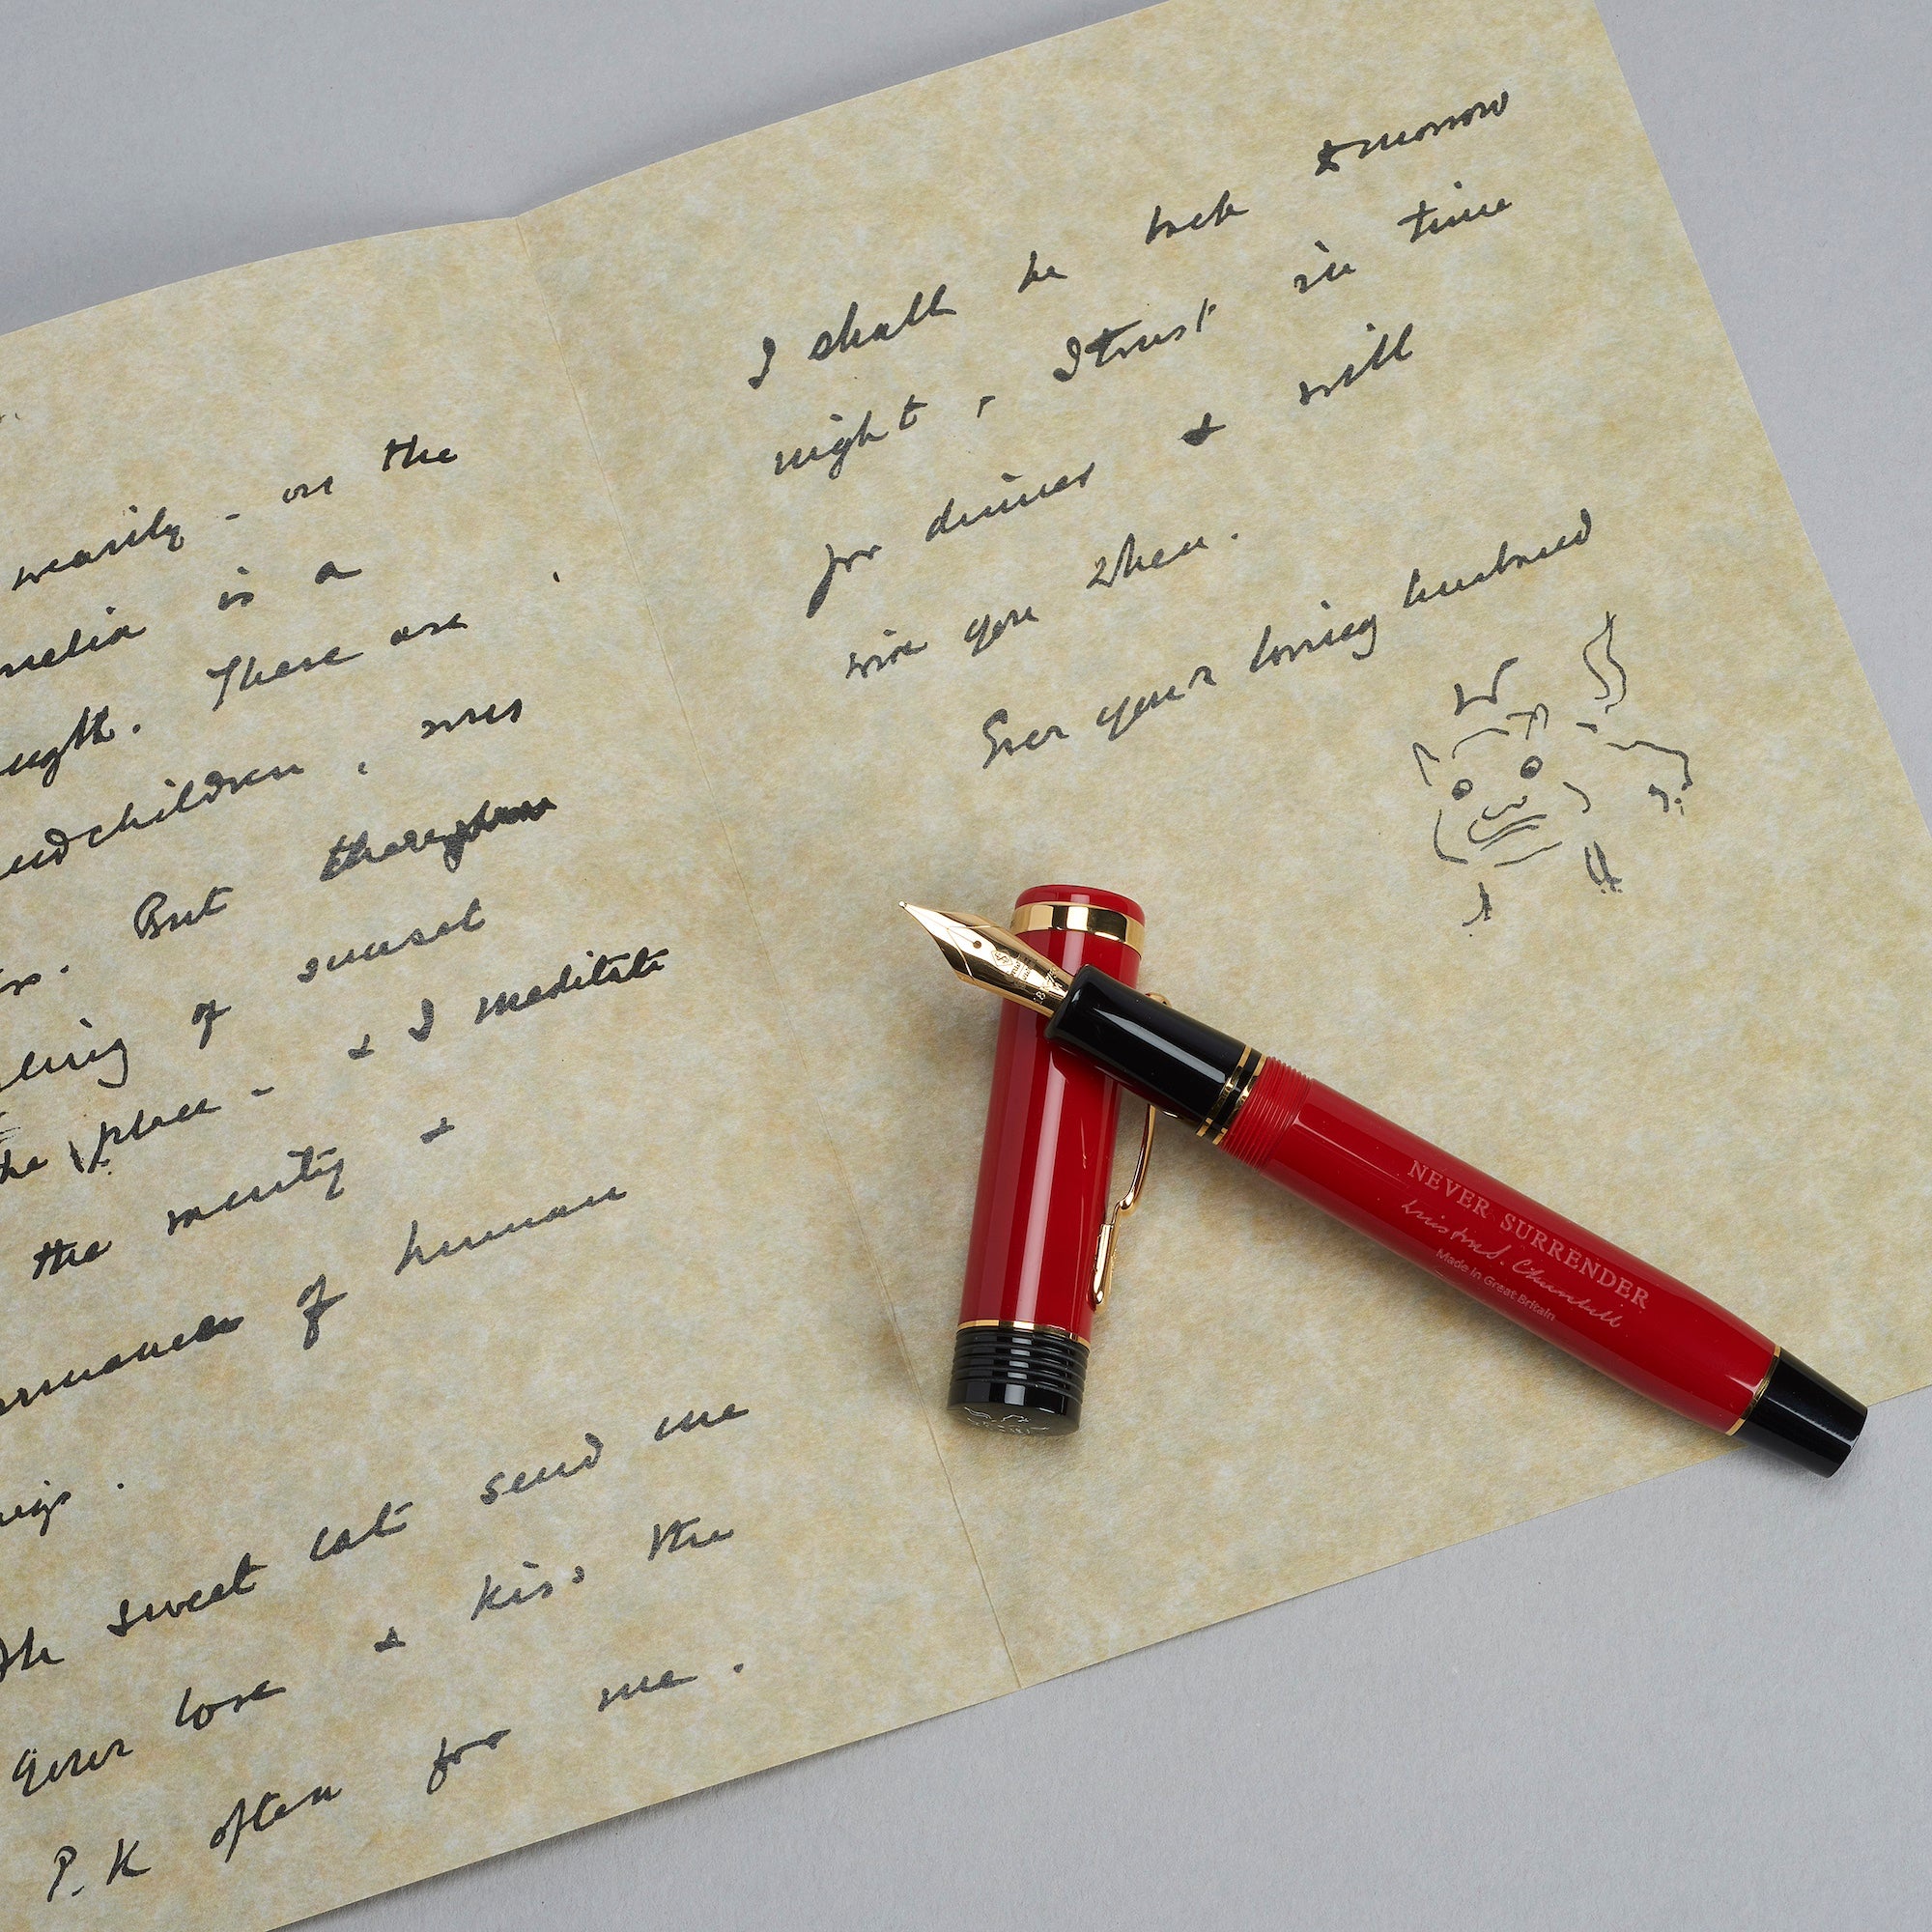 wearily - on the
is a
There are
children, wives
But
of sunset
the place - & I meditate
the vanity &
of human
sweet cat send me
your love & kiss the
P.K often for me.
I shall be back tomorrow
night, I trust in time
for dinner & will
wire you when.
Ever your loving husband
W
NEVER SURRENDER
Winston S. Churchill
Made in Great Britain